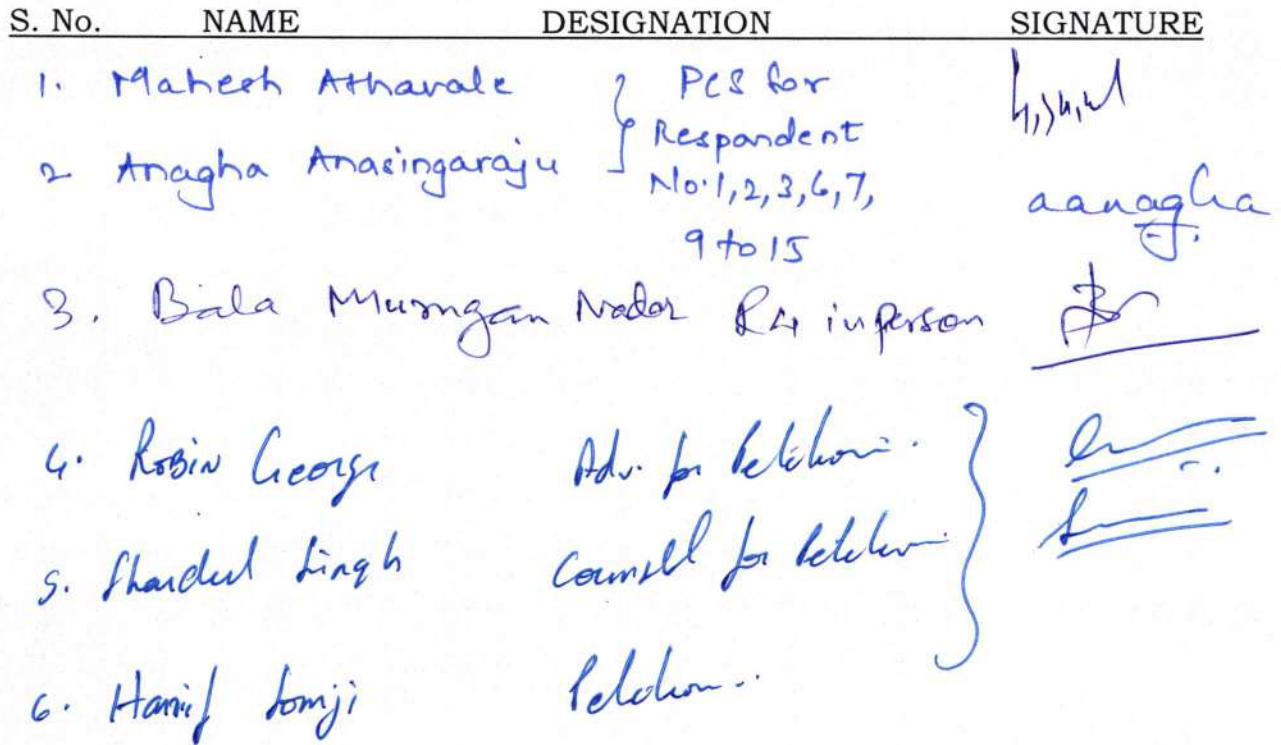 S. No. NAME DESIGNATION SIGNATURE
1. Mahesh Athavale PCS for
Respandent
2 Anagha Anasingaraju No. 1, 2, 3, 6, 7,
aanagha
9 to 15
3. Bala Murugan Nadar R4 in person
4. Robin George Adv. for Petitioner.
5. Shardul Singh Counsell for Petitioner
6. Hanif Somji Petitioner..